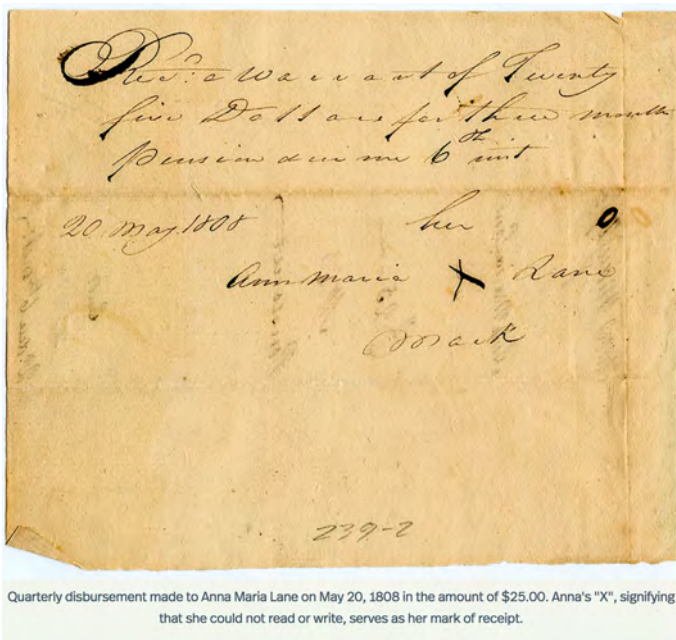 Rec.d a Warrant of Twenty
five Dollars for three months
Pension due me 6th inst
20 May 1808 her
Ann Maria X Lane
Mark
239-2
Quarterly disbursement made to Anna Maria Lane on May 20, 1808 in the amount of $25.00. Anna's "X", signifying
that she could not read or write, serves as her mark of receipt.